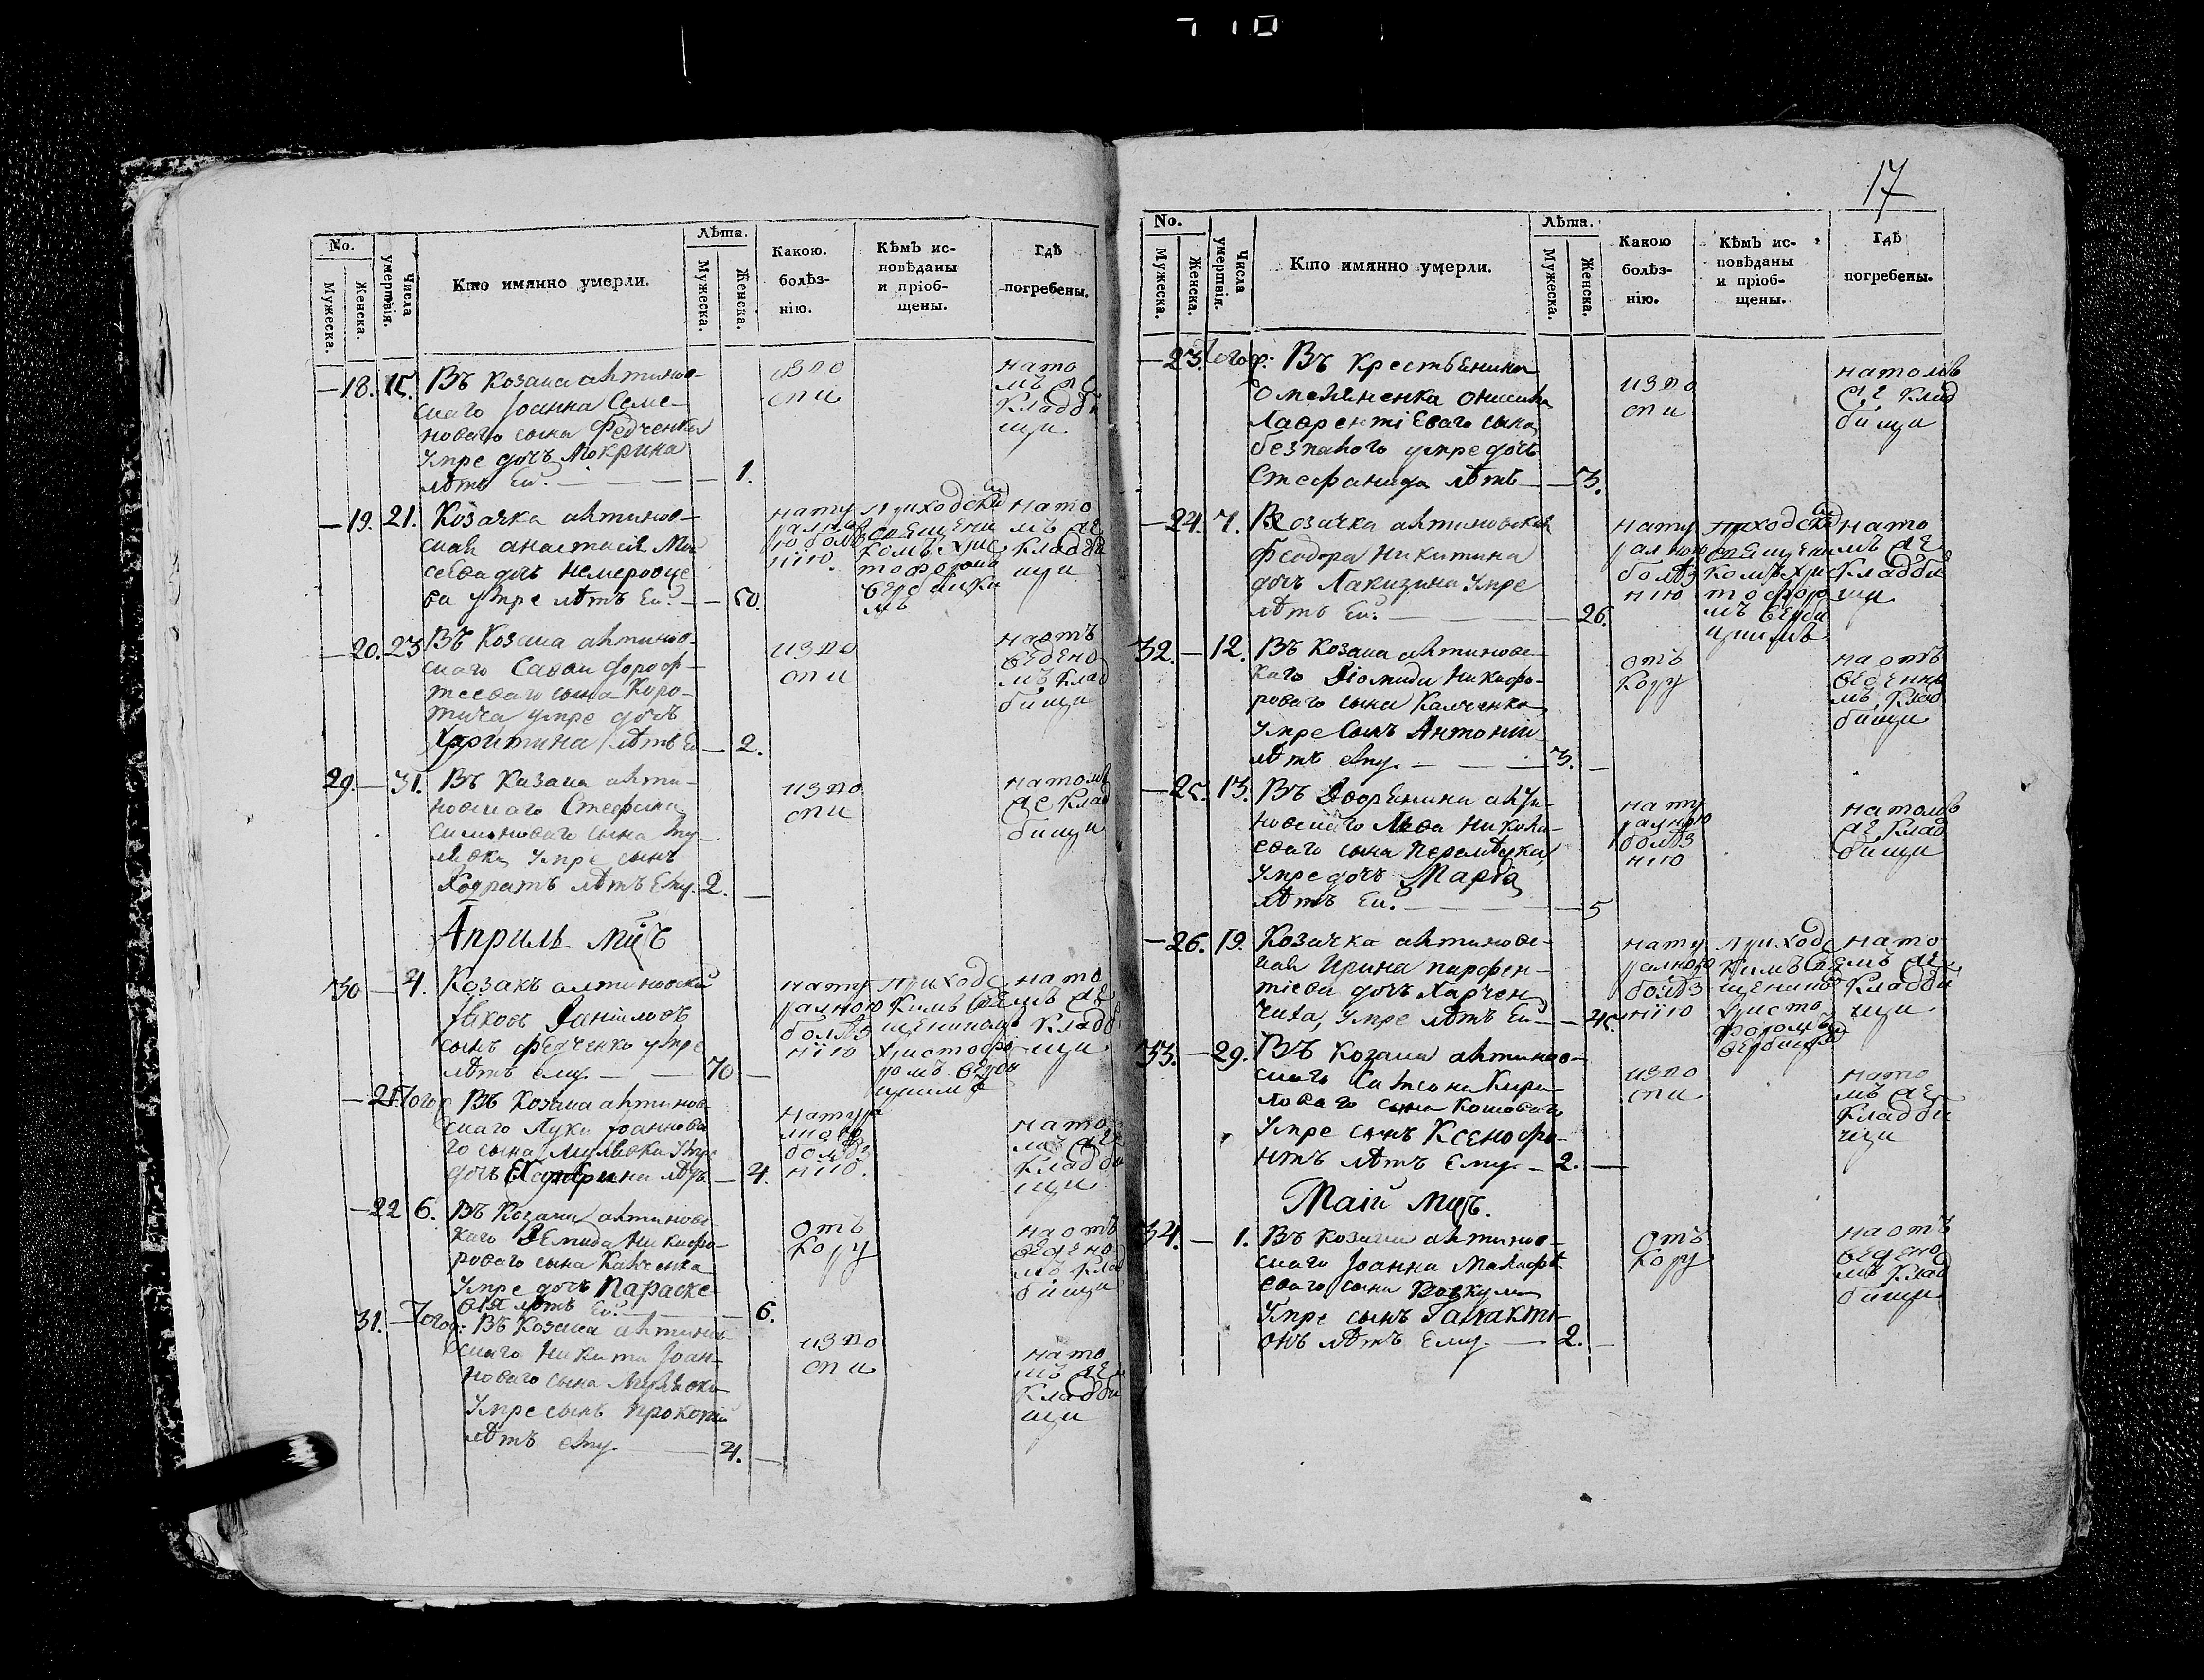 710
No.
Мужеска.
Женска.
Числа умертвія.
Кто имянно умерли.
Лѣта.
Мужеска.
Женска.
Какою.
болѣз-
нію.
Кѣмъ ис-
повѣданы
и пріоб-
щены.
Гдѣ
погребены.
—18. 15. Въ Козака
скаго Іоанна Семе-
новаго сына Федченка
умре дочъ Мокрина
лѣтъ Ей. — 1.
изпо
спи
нато
мъ же
кладби
щи
—19. 21. Козачка
ская анастасія
дочъ
умре лѣтъ Ей. — 50.
нату
ралною болѣз
нію
приходски
священи
комъ Хрис
тофоромъ
нато
мъ же
кладби
щи
—20. 23 Въ Козака
скаго Савви Дороф-
теева сына Коро-
тича умре дочъ
Харитина лѣтъ Ей — 2.
изпо
спи
наотъ
ведено
мъ клад
бищи
29. — 31. Въ Казака
новскаго Стефана
сына
умре сынъ
Кодратъ лѣтъ Ему. 2. —
изпо
спи
натомъ
же клад
бищи
Апрель мцъ
30 — 4. Козакъ
Яковъ Даніиловъ
сынъ Федченко умре
лѣтъ ему. — 70 —
нату
ралною
болѣз
нію
приходс
кимъ свя
щеникомъ
христофо
ромъ
нато
мъ же
кладби
щи
—21. Тогож Въ Козака
скаго Луки Іоаннова
го сына умре
дочъ лѣтъ — 4.
натура
лною
болѣз
нію
нато
мъ же
кладби
щи
—22 6. Въ Козака
каго Демида Никифо-
роваго сына Калченка
умре дочъ Параске-
вія лѣтъ Ей. — 6.
отъ
кору
наотъ
ведено
мъ клад
бищи
31. — Тогож: Въ Козака
скаго Никити Іоан-
новаго сына
умре сынъ прокопій
лѣтъ ему. — 4. —
изпо
спи
нато
мъ же
кладби
щи
17
No.
Мужеска.
Женска.
Числа умертвія.
Кто имянно умерли.
Лѣта.
Мужеска.
Женска.
Какою
болѣз-
нію.
Кѣмъ ис-
повѣданы
и пріоб-
щены.
Гдѣ
погребены.
—23. Тогож: Въ Крестьянина
Лаврентіеваго сына
умре дочъ
Стефанида лѣтъ — 3.
изпо
спи
натомъ
же клад
бищи
—24. 7. Козачка
Феодора Никитина
дочъ Лакизина умре
лѣтъ Ей. — 26.
нату
ралною
болѣз
нію
приходски
священи
комъ Хрис
тофоро
мъ
нато
мъ же
кладби
щи
32. — 12. Въ Козака
каго Діомида Никифо-
роваго сына Калченка
умре сынъ Антоній
лѣтъ ему. — 3. —
отъ
кору
наотъ
веденно
мъ клад
бищи
—25. 13. Въ Дворянина
новскаго Лва Никола-
еваго сына
умре дочъ Марфа
лѣтъ Ей. — 5
нату
ралною
болѣз
нію
натомъ
же клад
бищи
—26. 19. Козачка
кая Ирина парфен-
тіева дочъ Харчен
умре лѣтъ Ей — 45.
нату
ралною
болѣз
нію
приходс
кимъ свя
щеникомъ
христо
форомъ
нато
мъ же
кладби
щи
33. — 29. Въ Козака
скаго Кири-
ловаго сына Кошоваго
умре сынъ Ксенофо-
нтъ лѣтъ Ему. — 2. —
изпо
спи
нато
мъ же
кладби
щи
Маій мцъ.
34. — 1. Въ Козака
скаго Іоанна
еваго сына
умре сынъ Галакті-
онъ лѣтъ Ему. — 2. —
отъ
кору
наотъ
ведено
мъ клад
бищи